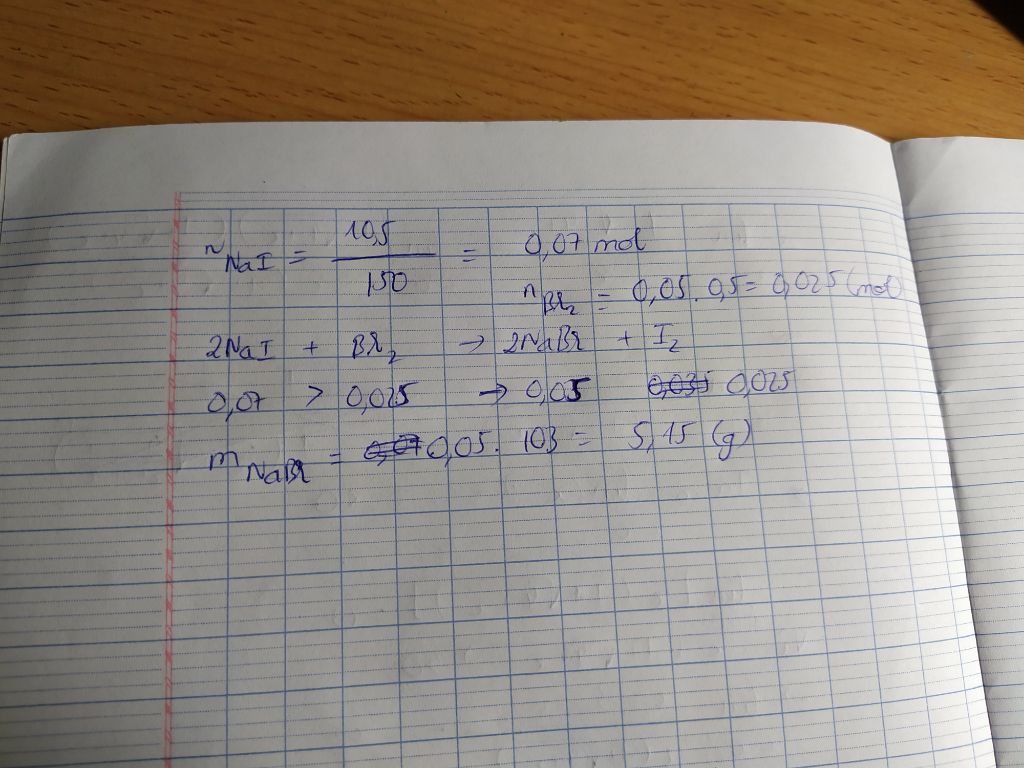 n NaI = 10,5 / 150 = 0,07 mol
n Br2 = 0,05 . 0,5 = 0,025 (mol)
2NaI + Br2 → 2NaBr + I2
0,07 > 0,025 → 0,05 0,035 0,025
m NaBr = 0,07 0,05 . 103 = 5,15 (g)